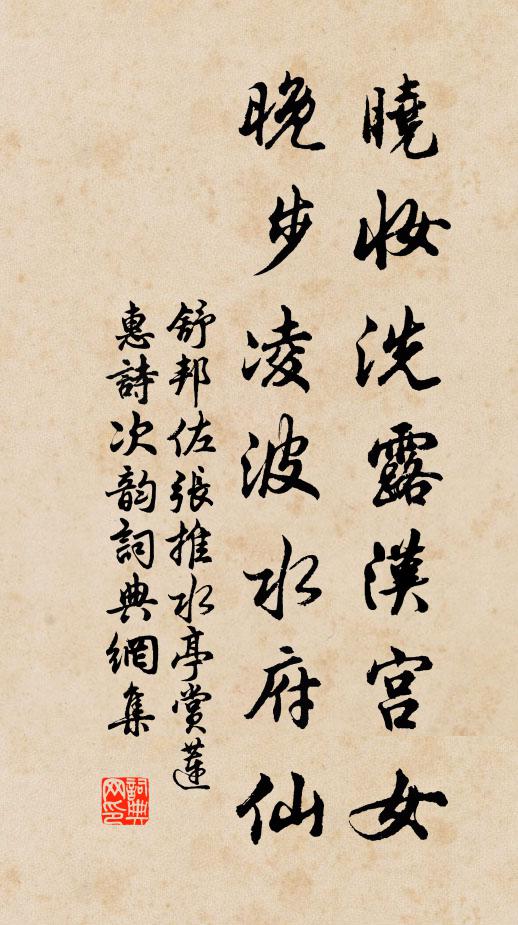 曉妝洗露漢宮女
晚步凌波水府仙
舒邦佐張推水亭賞蓮
惠詩次韵詞典網集
詞典網印